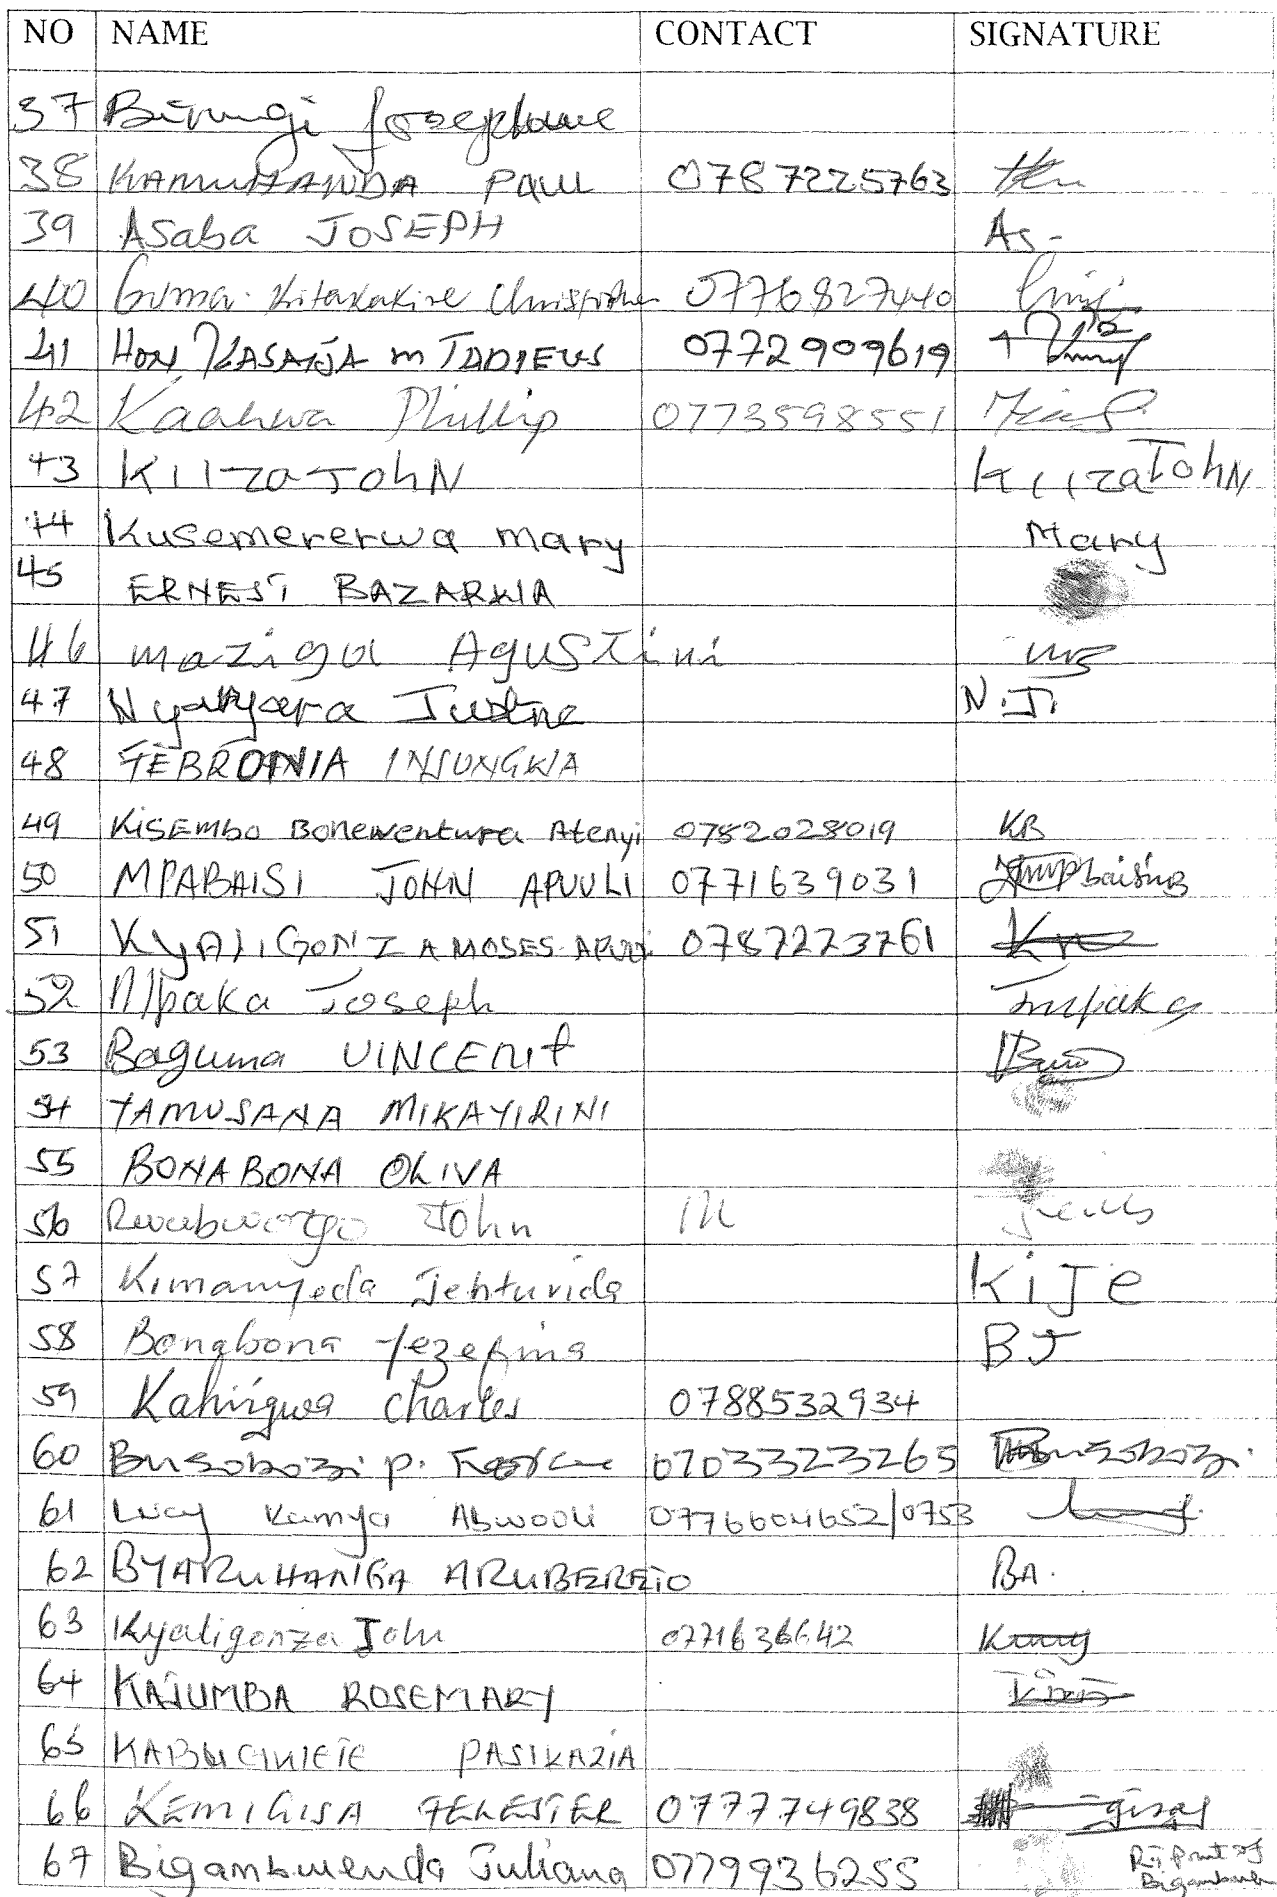 NO NAME CONTACT SIGNATURE
37 Birungi Josephine
38 KAMUHANDA PAUL 0787225763
39 Asaba JOSEPH As-
40 Guma Kitakakire Christopher 0776827440
41 HON KASAIJA M TADIEUS 0772909619
42 Kaahwa Phillip 0773598551
43 KIIZA JOHN KIIZA JOHN
44 Kusemererwa mary Mary
45 ERNEST BAZARWIA
46 maziga Agustini
47 Nyangara Justine N.J.
48 FEBRONIA INSUNGWA
49 KISEMBO Boneventura Atenyi 0782028019 KB
50 MPABAISI JOHN APUULI 0771639031
51 KYALIGONZA MOSES APUULI 0787223761
52 Mpaka Joseph Jmpaka
53 Baguma VINCENT
54 TAMUSANA MIKAYIRINI
55 BONABONA OLIVA
56 John
57 Kimanyeda Jehturida KIJE
58 Bonabona Jezefina BJ
59 Kahirigwa Charles 0788532934
60 Busobozi p. 0703323265 Busobozi
61 Lucy Kamya Abwooli 0776604652/0753
62 BYARUHANGA ARUBEREIO BA.
63 Kyaligonza John 0771636642
64 KAJUMBA ROSEMARY
65 PASIKAZIA
66 KEMIGISA FELESTER 0777749838
67 Bigambwenda Juliana 0779936255